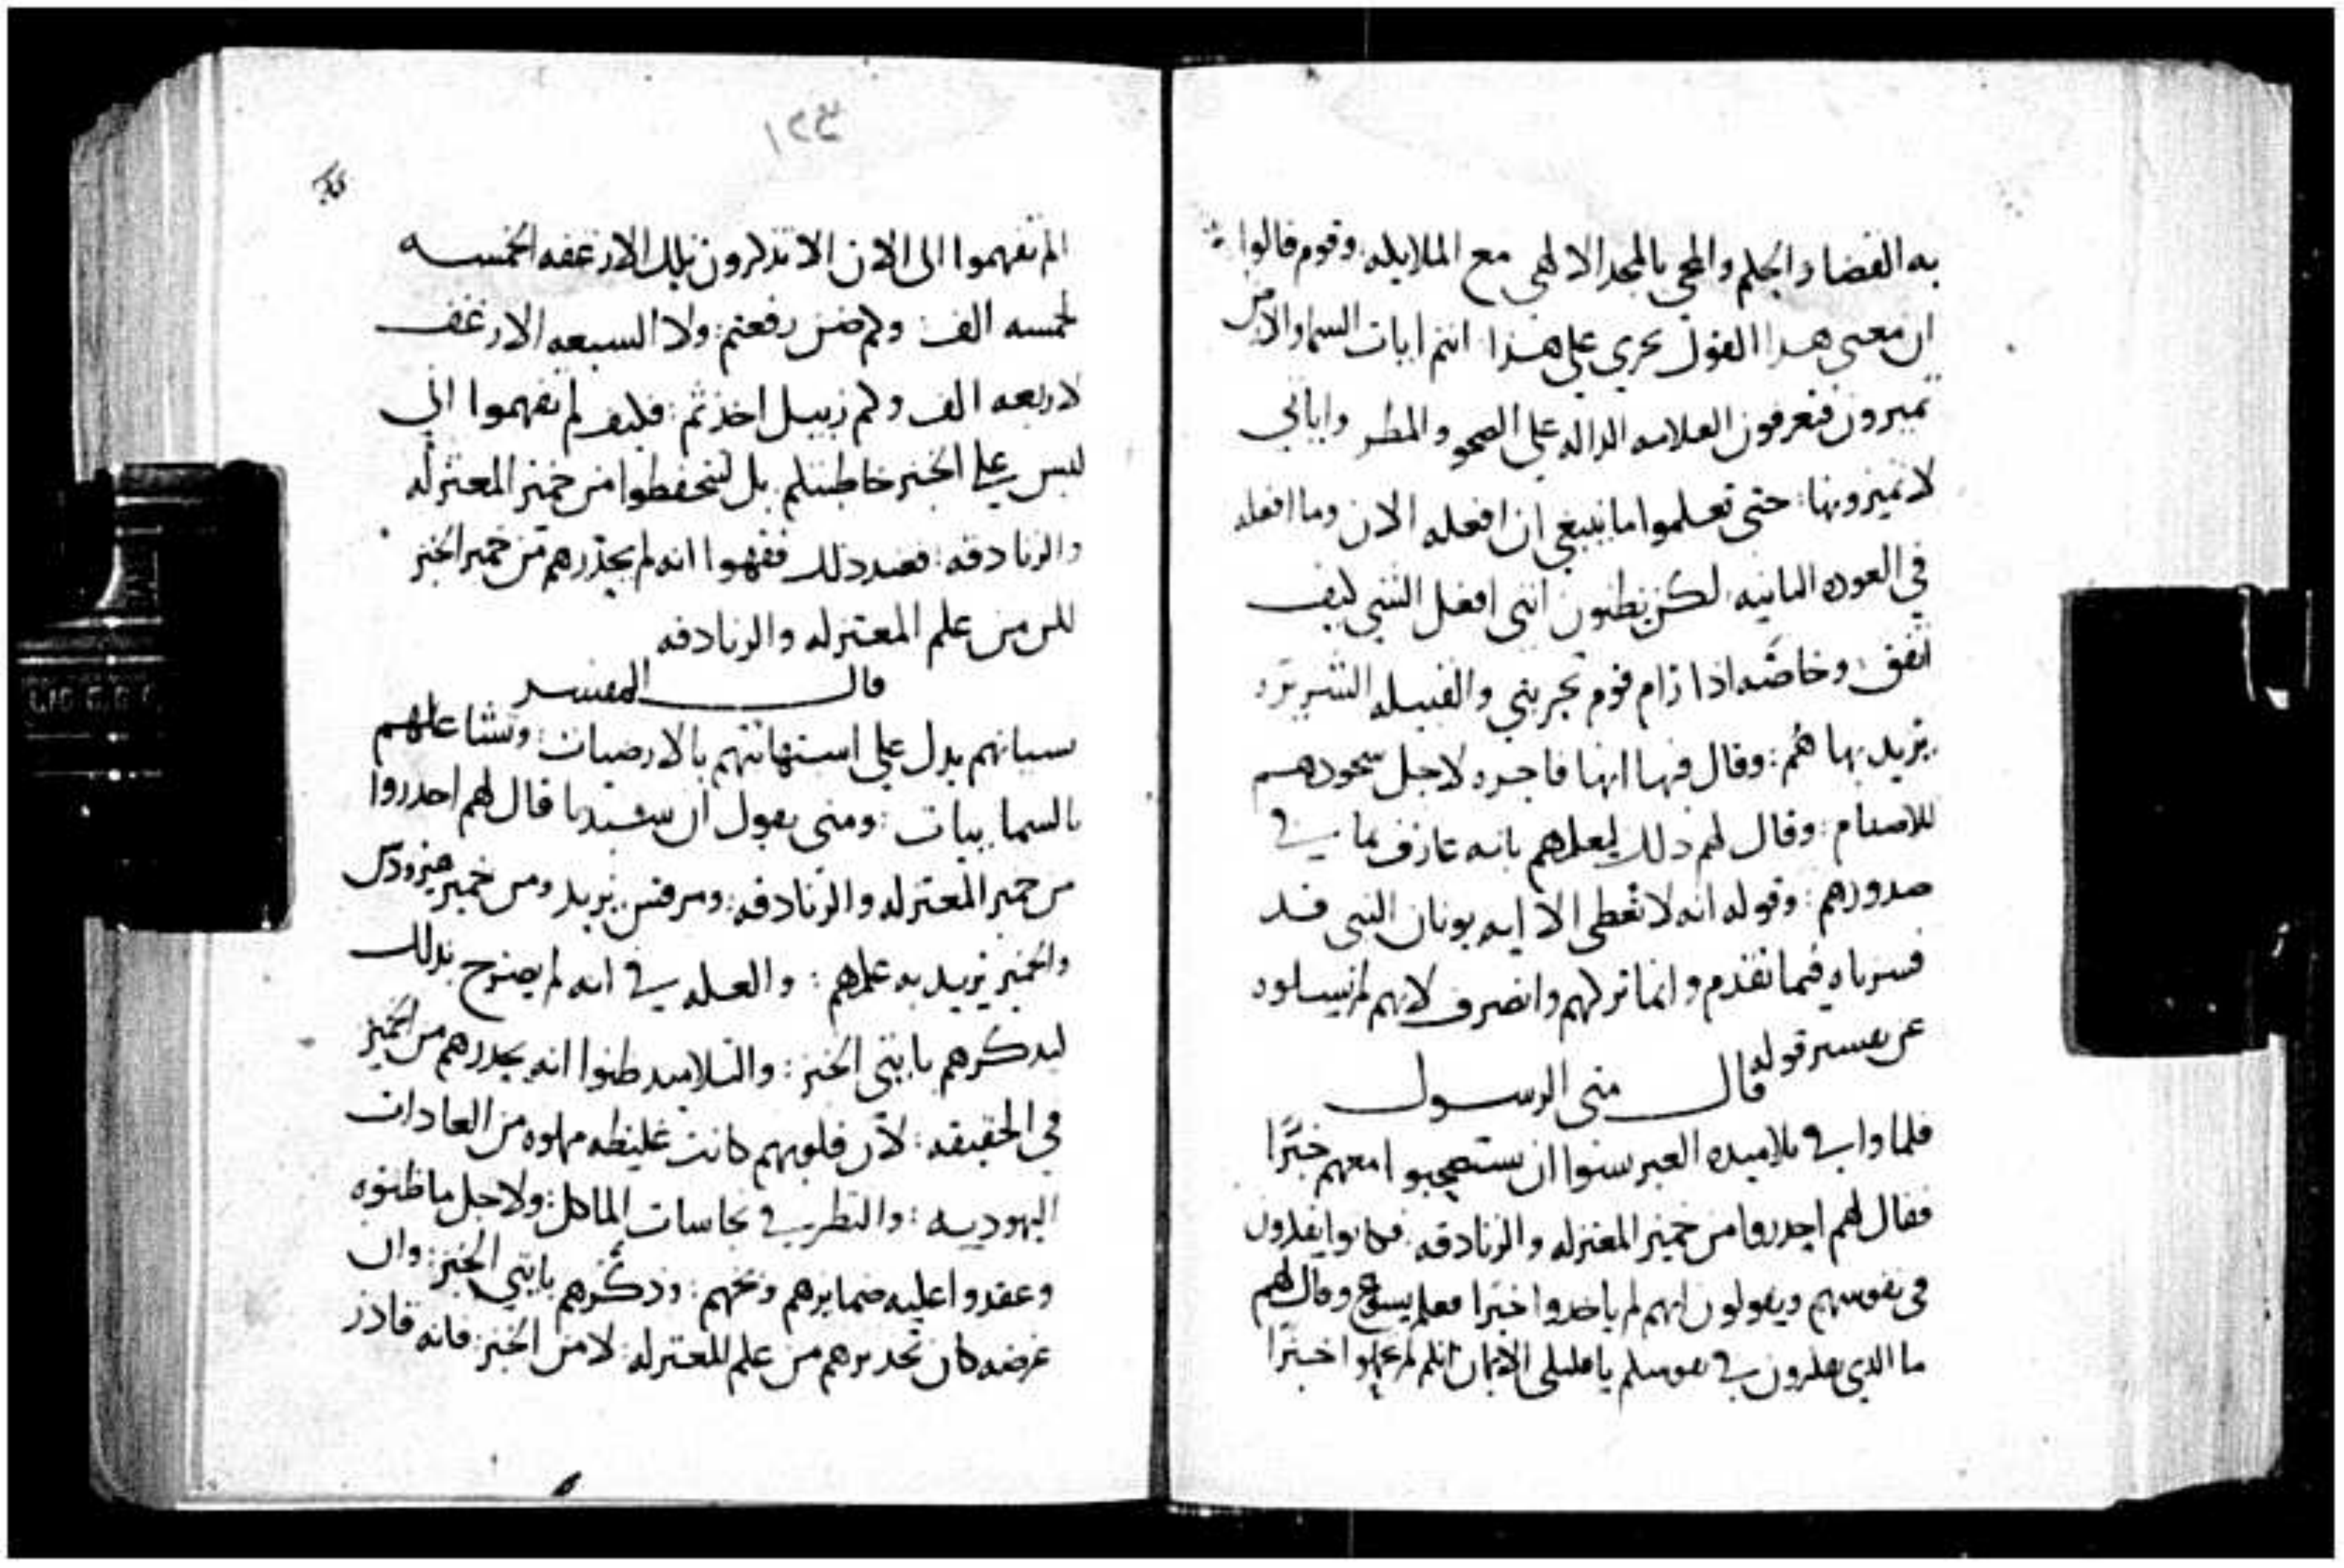 به القضا والحكم والمجي بالمجد الالهي مع الملايكه وقوم قالوا
ان معنى هدا القول يجري على هذا انتم ايات السما والارض
تميزون فتعرفون العلامه الداله على الصحو والمطر واياتي
لا تميزونها حتى تعلموا ما ينبغي ان افعله الان وما افعله
في العوده الثانيه لكن تظنون انني افعل الشي كيف
اتفق وخاصه اذا رام قوم تجربتي والقبيله الشريره
يريد بها هم وقال فيها انها فاجره لاجل سجودهم
للاصنام وقال لهم ذلك ليعلمهم بانه عارف بما في
صدورهم وقوله انه لا تعطى الا ايه يونان النبي قد
فسرناه فيما تقدم وانما تركهم وانصرف لانهم لم يسلوه
عن تفسير قوله
قال متى الرسول
فلما وافى تلاميذه العبر نسوا ان يستصحبوا معهم خبزا
فقال لهم احدروا من خمير المعتزله والزنادقه فكانوا يفكرون
في نفوسهم ويقولون انهم لم ياخدوا خبزا فعلم يسوع وقال لهم
ما الدي تفكرون في نفوسكم يا قليلي الايمان انكم لم تحملوا خبزا
١٢٤
الم تفهموا الى الان الا تذكرون تلك الارغفه الخمسه
لخمسه الف وكم ضبن رفعتم ولا السبعه الارغف
لاربعه الف وكم زبيل اخذتم فكيف لم تفهموا اني
ليس على الخبز خاطبتكم بل لتتحفظوا من خمير المعتزله
والزنادقه فعند ذلك ففهموا انه لم يحذرهم من خمير الخبز
لكن من علم المعتزله والزنادقه
قال المفسر
نسيانهم يدل على استهانتهم بالارضيات وتشاغلهم
بالسماييات ومتى يقول ان سيدنا قال لهم احدروا
من خمير المعتزله والزنادقه ومرقس يزيد ومن خمير هيرودس
والخمير يريد به علمهم والعله في انه لم يصرح بذلك
ليدكرهم بايتي الخبز والتلاميد ظنوا انه يحدرهم من الخمير
في الحقيقه لان قلوبهم كانت غليظه مملوه من العادات
اليهوديه والنظر في نجاسات الماكل ولاجل ما ظنوه
وعقدوا عليه ضمايرهم وبخهم وذكرهم بايتي الخبز وان
غرضه كان تحديرهم من علم المعتزله لا من الخبز فانه قادر